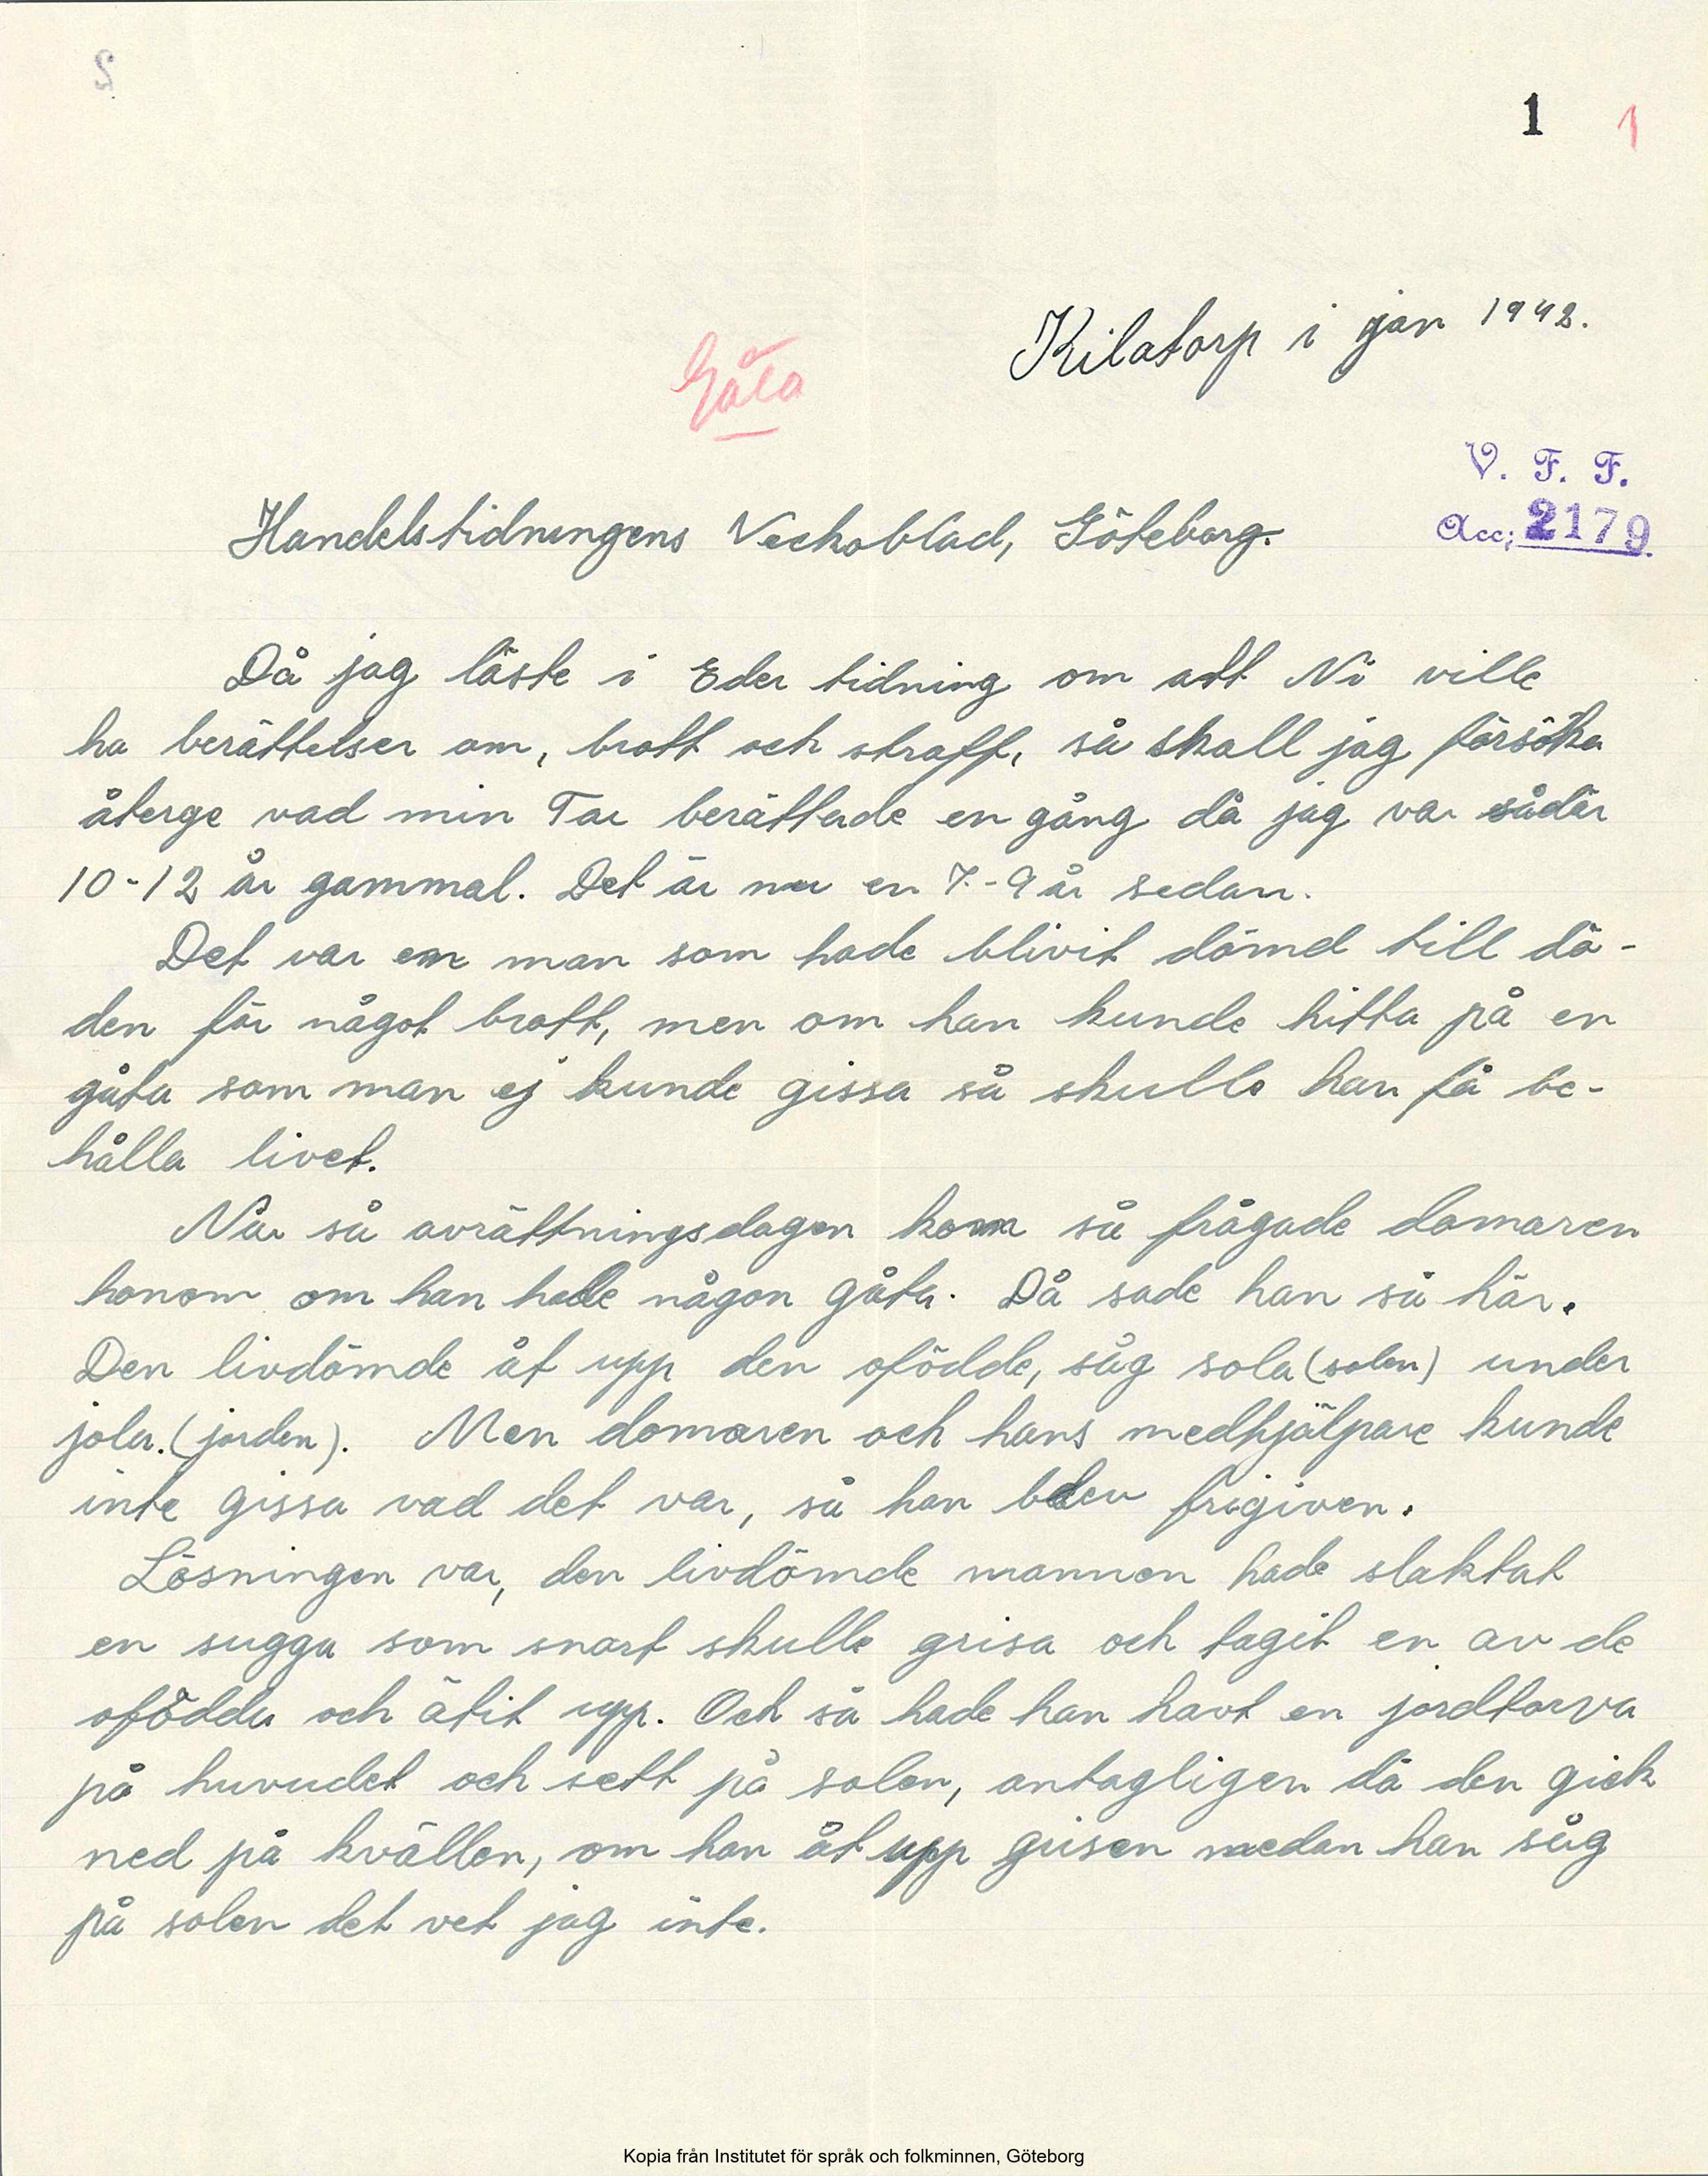 1 1
Kilatorp i jan 1942.
Gåta
V. F. F.
Acc; 2179.
Handelstidningens Veckoblad, Göteborg.
Då jag läste i Eder tidning om att Ni ville
ha berättelser om, brott och straff, så skall jag försöka
återge vad min Far berättade en gång då jag var sådär
10-12 år gammal. Det är nu en 7-9 år sedan.
Det var en man som hade blivit dömd till dö-
den för något brott, men om han kunde hitta på en
gåta som man ej kunde gissa så skulle han få be-
hålla livet.
När så avrättningsdagen kom så frågade domaren
honom om han hade någon gåta. Då sade han så här.
Den livdömde åt upp den ofödde, såg sola (solen) under
jola. (jorden). Men domaren och hans medhjälpare kunde
inte gissa vad det var, så han blev frigiven.
Lösningen var, den livdömde mannen hade slaktat
en sugga som snart skulle grisa och tagit en av de
ofödda och ätit upp. Och så hade han havt en jordtorva
på huvudet och sett på solen, antagligen då den gick
ned på kvällen, om han åt upp grisen medan han såg
på solen det vet jag inte.
Kopia från Institutet för språk och folkminnen, Göteborg